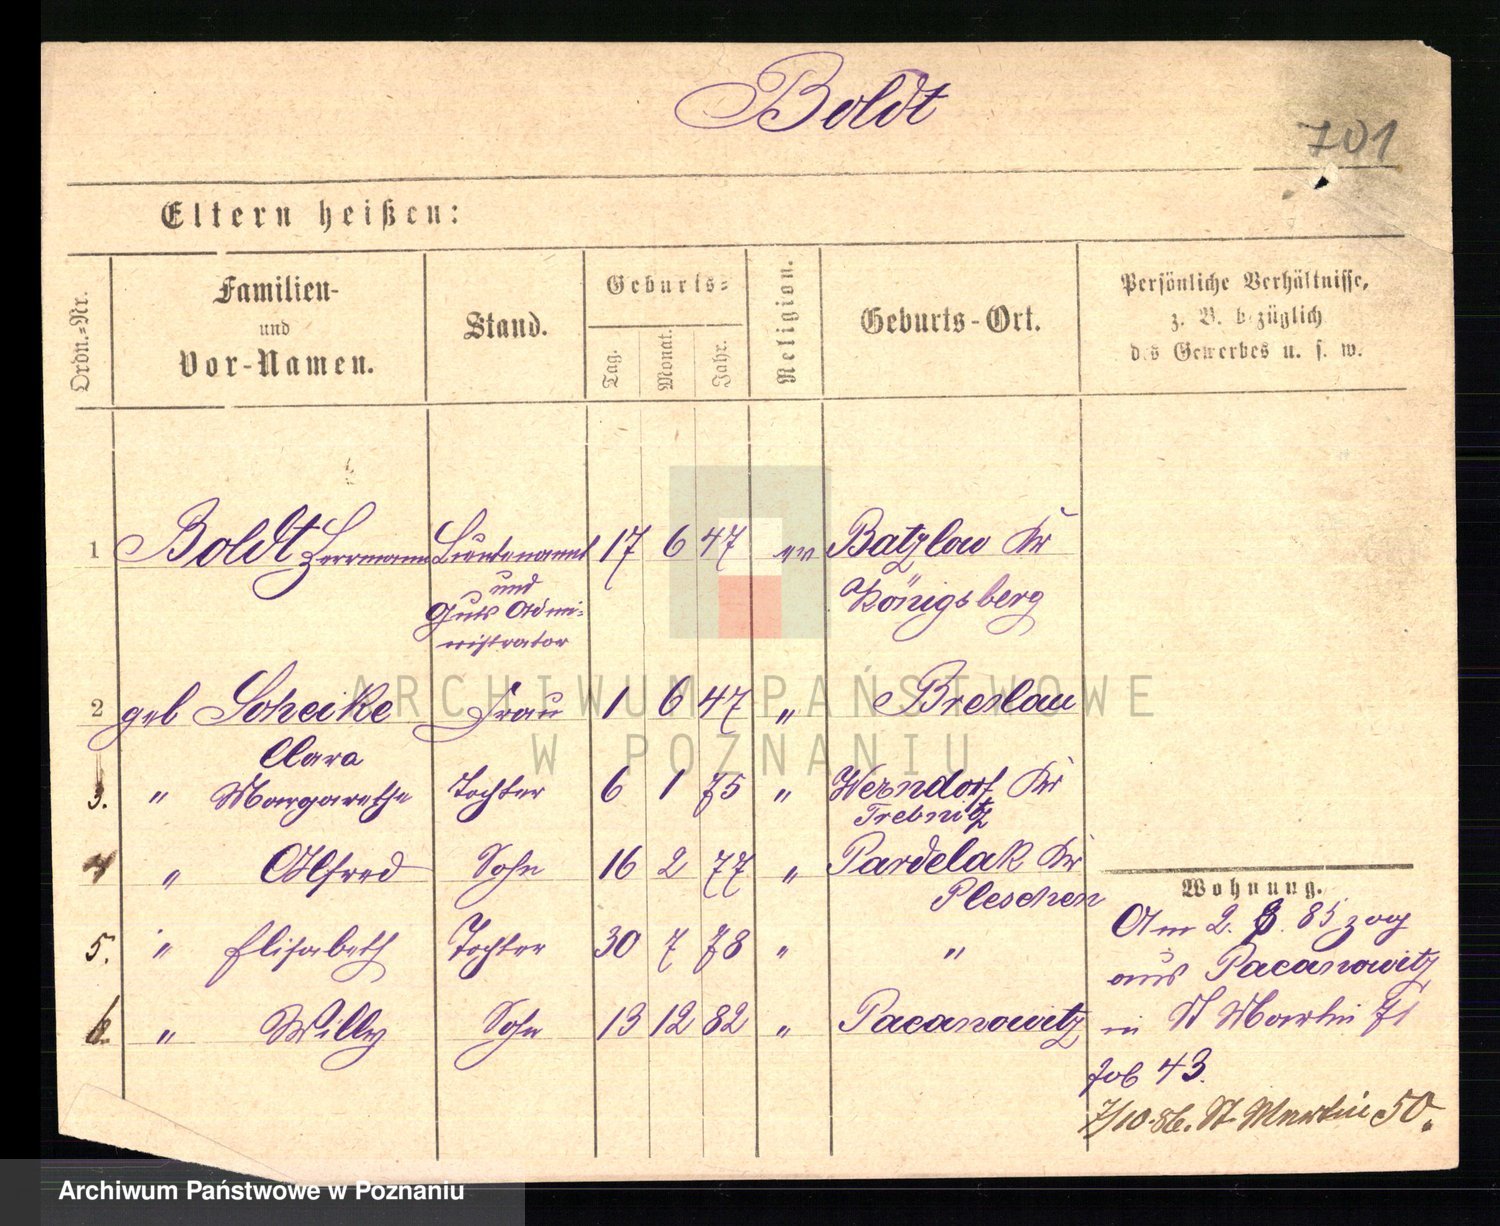 Boldt
701
Eltern heißen:
Ordn.-Nr.
Familien-
und
Vor-Namen.
Stand.
Geburts-
Tag.
Monat.
Jahr.
Religion.
Geburts-Ort.
Persönliche Verhältnisse,
z. B. bezüglich
des Gewerbes u. s. w.
1 Boldt Herrmann Lieutenannt 17 6 47 ev Batzlow Kr
und
Guts Admi- Königsberg
nistrator
2 geb Scheike Frau 1 6 47 " Breslau
Clara
3. " Margarethe Tochter 6 1 75 " Werndorf Kr
Trebnitz
4 " Alfred Sohn 16 2 77 " Pardelak Kr
Pleschen
5. " Elisabeth Tochter 30 7 78 " "
6. " Willy Sohn 13 12 82 " Pacanowitz
Wohnung.
Am 2. 85 zog
aus Pacanowitz
in St Martin 71
43.
7/10.86. St. Martin 50.
ARCHIWUM PAŃSTWOWE
W POZNANIU
Archiwum Państwowe w Poznaniu